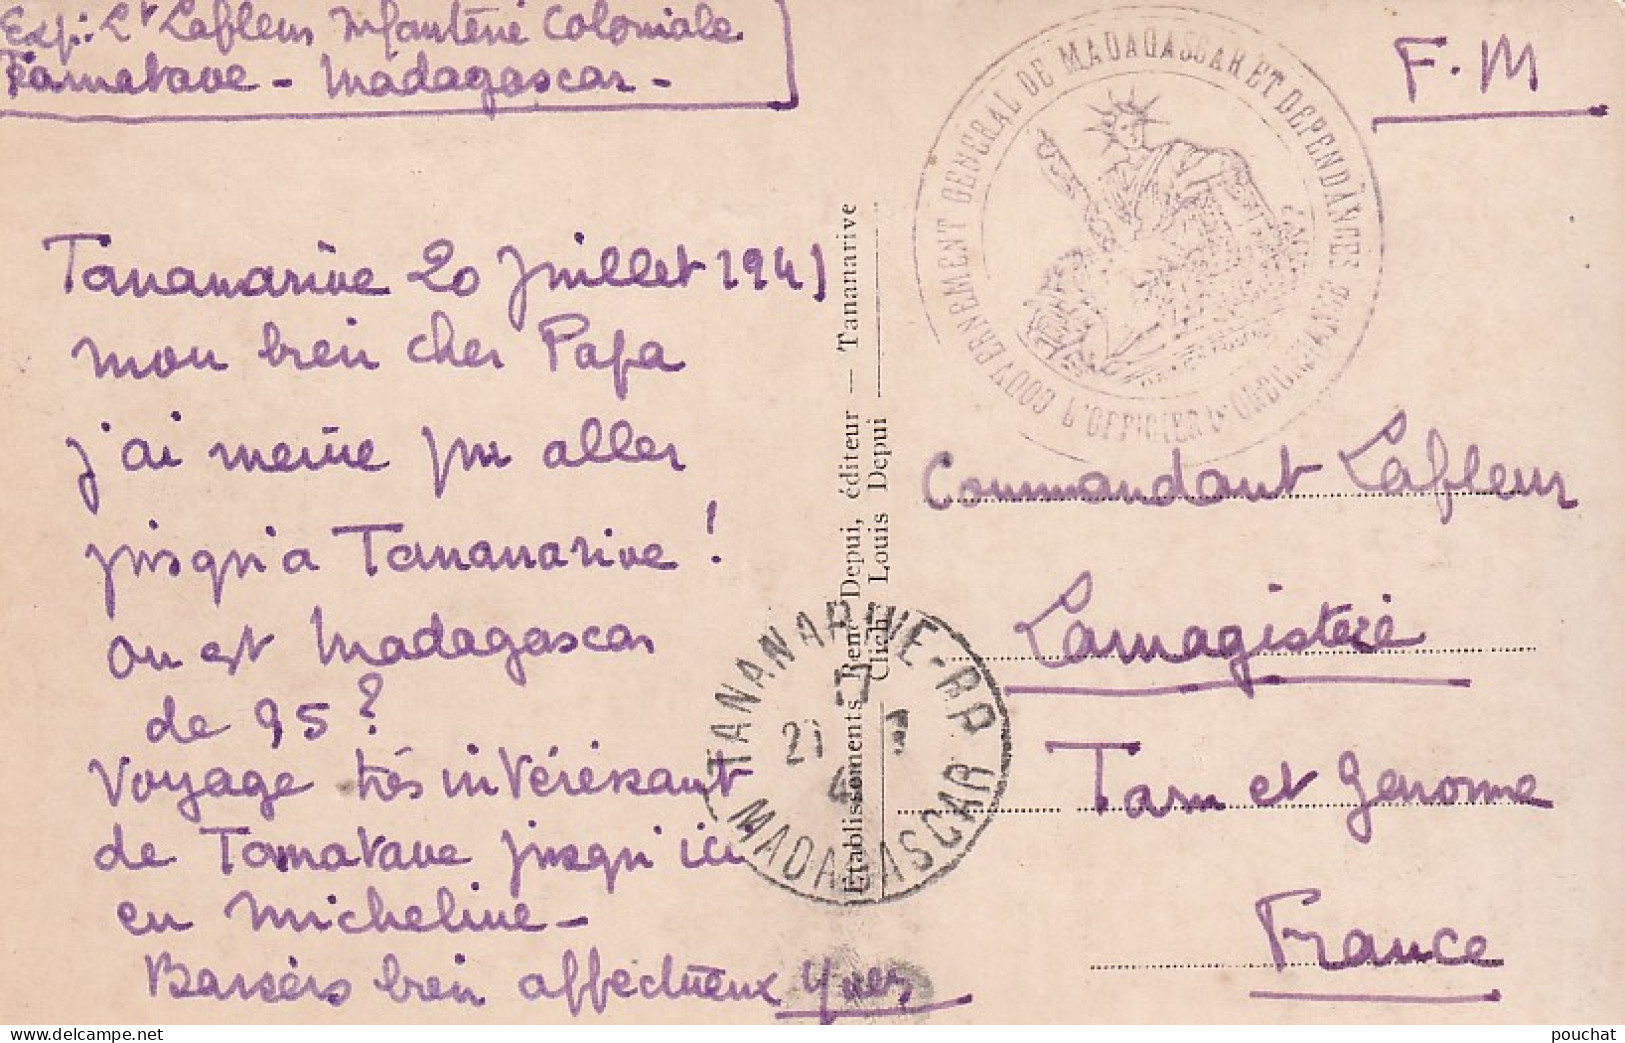 Exp: Lt Lafleur Infanterie Coloniale
Tamatave - Madagascar -
F. M
GOUVERNEMENT GENERAL DE MADAGASCAR ET DEPENDANCES
L'OFFICIER D'ORDONNANCE
Tananarive 20 Juillet 1941
mon bien cher Papa
j'ai même pu aller
jusqu'a Tananarive !
où est Madagascar
de 95 ?
Voyage très intéressant
de Tamatave jusqu'ici
en Micheline -
Baisers bien affectueux Yves
Établissements René Depui, éditeur — Tananarive
Cliché Louis Depui
TANANARIVE-R.P
21 7
MADAGASCAR
Commandant Lafleur
Lamagistère
Tarn et Garonne
France
pouchat